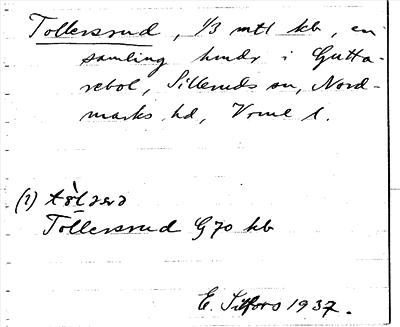 Tollersrud, 1/3 mtl kb, en
samling hmdr i Gutta-
rebol, Silleruds sn, Nord-
marks hd, Vrml l.
(1)
Tollersrud G 70 kb
E. Silfors 1937.